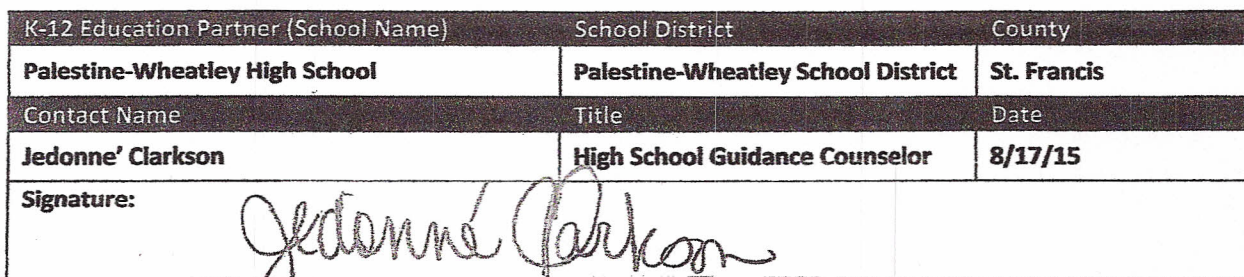 K-12 Education Partner (School Name) School District County
Palestine-Wheatley High School Palestine-Wheatley School District St. Francis
Contact Name Title Date
Jedonne’ Clarkson High School Guidance Counselor 8/17/15
Signature:
Jedonné Clarkson